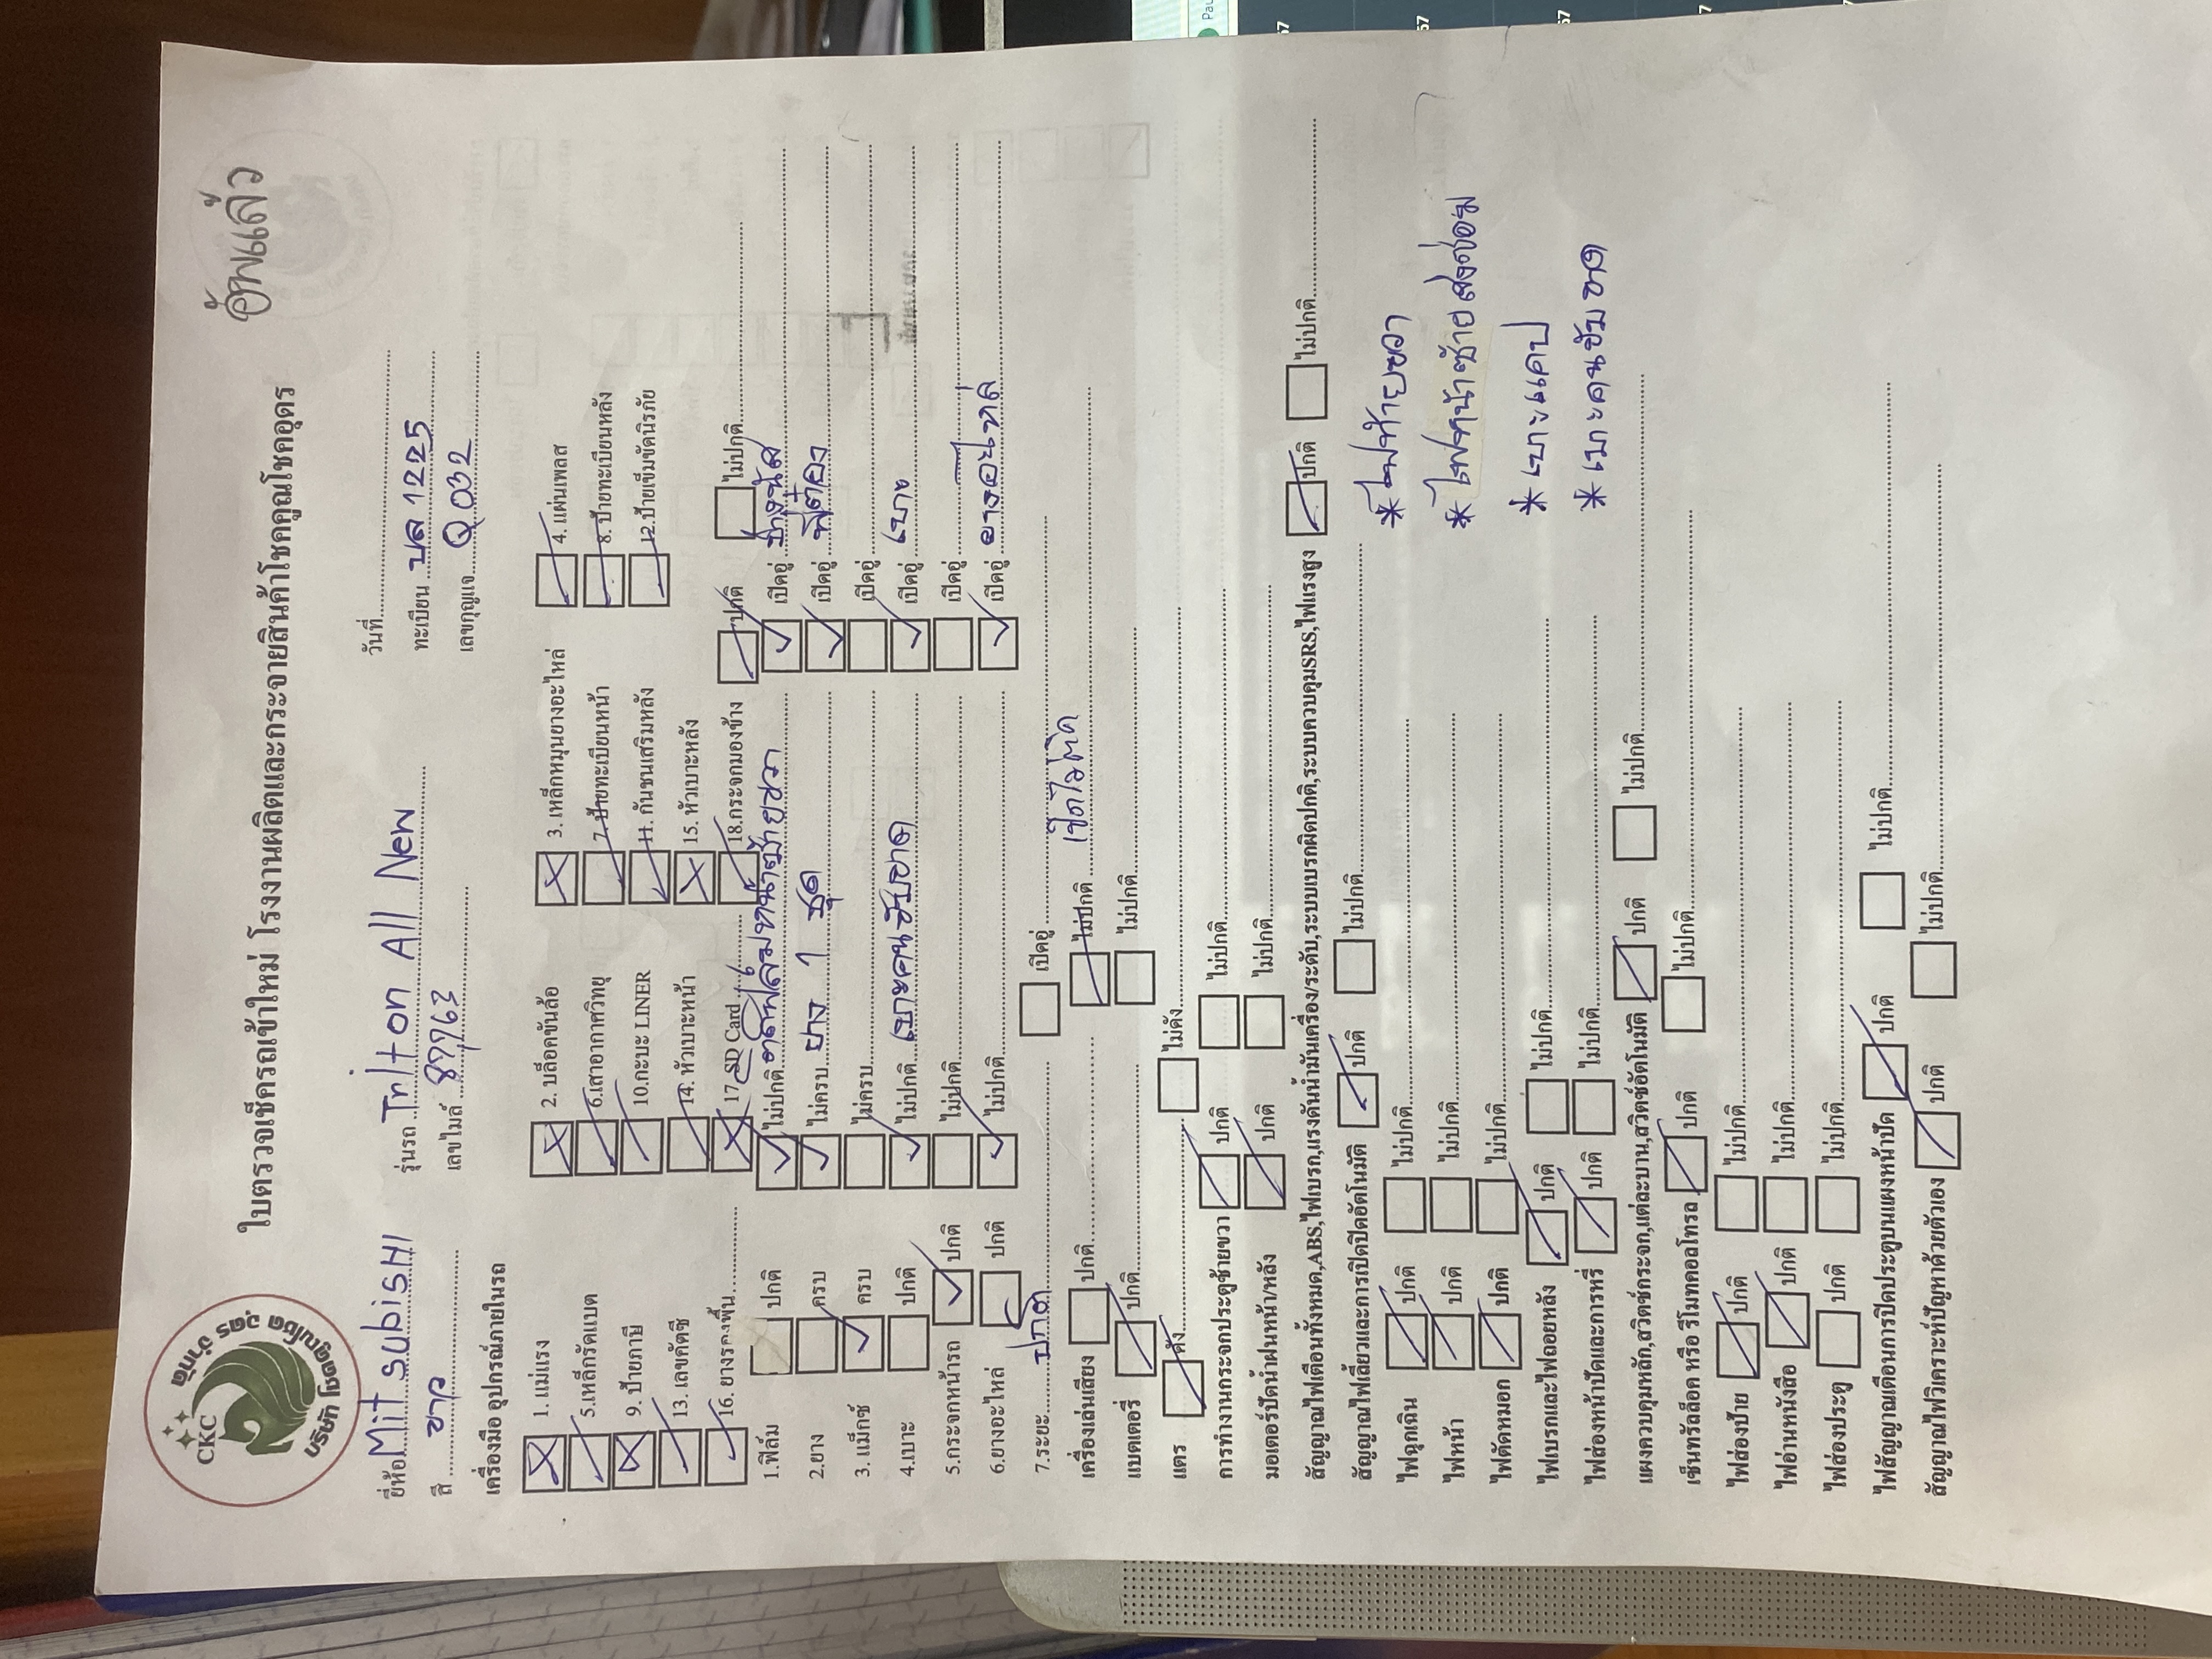 อัพแล้ว
CKC
บริษัท โชคคูณโชค อุดร จำกัด
ใบตรวจเช็ครถเข้าใหม่ โรงงานผลิตและกระจายสินค้าโชคคูณโชคอุดร
วันที่
ยี่ห้อ Mitsubishi รุ่นรถ Triton All New ทะเบียน บล 1225
สี ขาว เลขไมล์ 87763 เลขกุญแจ Q032
เครื่องมือ อุปกรณ์ภายในรถ
1. แม่แรง 2. บล็อคขันล้อ 3. เหล็กหมุนยางอะไหล่ 4. แผ่นเพลส
5.เหล็กรัดแบต 6.เสาอากาศวิทยุ 7. ป้ายทะเบียนหน้า 8. ป้ายทะเบียนหลัง
9. ป้ายภาษี 10.กะบะ LINER 11. กันชนเสริมหลัง 12.ป้ายเข็มขัดนิรภัย
13. เลขคัตซี 14. หัวเบาะหน้า 15. หัวเบาะหลัง
16. ยางรองพื้น 17. SD Card 18.กระจกมองข้าง ปกติ ไม่ปกติ
1.ฟิล์ม ปกติ ไม่ปกติ เปิดอยู่
2.ยาง ครบ ไม่ครบ ยาง 1 ชุด เปิดอยู่
3. แม็กซ์ ครบ ไม่ครบ เปิดอยู่
4.เบาะ ปกติ ไม่ปกติ เบาะคนขับขาด เปิดอยู่ เบาะ
5.กระจกหน้ารถ ปกติ ไม่ปกติ เปิดอยู่
6.ยางอะไหล่ ปกติ ไม่ปกติ เปิดอยู่ ยางอะไหล่
7.ระยะ ปกติ เปิดอยู่
เครื่องเล่นเสียง ปกติ ไม่ปกติ เปิดไม่ติด
แบตเตอรี่ ปกติ ไม่ปกติ
แตร ดัง ไม่ดัง
การทำงานกระจกประตูซ้ายขวา ปกติ ไม่ปกติ
มอเตอร์ปัดน้ำฝนหน้า/หลัง ปกติ ไม่ปกติ
สัญญาณไฟเตือนทั้งหมด,ABS,ไฟเบรก,แรงดันน้ำมันเครื่อง/ระดับ,ระบบเบรกผิดปกติ,ระบบควบคุมSRS,ไฟแรงสูง ปกติ ไม่ปกติ
สัญญาณไฟเลี้ยวและการเปิดปิดอัตโนมัติ ปกติ ไม่ปกติ
ไฟฉุกเฉิน ปกติ ไม่ปกติ
* ไฟท้ายขวา
ไฟหน้า ปกติ ไม่ปกติ
* ไฟหน้าซ้ายส่งซ่อม
ไฟตัดหมอก ปกติ ไม่ปกติ
* เบาะแคป
ไฟเบรกและไฟถอยหลัง ปกติ ไม่ปกติ
* เบาะคนขับขาด
ไฟส่องหน้าปัดและการหรี่ ปกติ ไม่ปกติ
แผงควบคุมหลัก,สวิตซ์กระจก,แต่ละบาน,สวิตซ์อัตโนมัติ ปกติ ไม่ปกติ
เซ็นทรัลล็อค หรือ รีโมทคอลโทรล ปกติ ไม่ปกติ
ไฟส่องป้าย ปกติ ไม่ปกติ
ไฟอ่านหนังสือ ปกติ ไม่ปกติ
ไฟส่องประตู ปกติ ไม่ปกติ
ไฟสัญญาณเตือนการปิดประตูบนแผงหน้าปัด ปกติ ไม่ปกติ
สัญญาณไฟวิเคราะห์ปัญหาด้วยตัวเอง ปกติ ไม่ปกติ